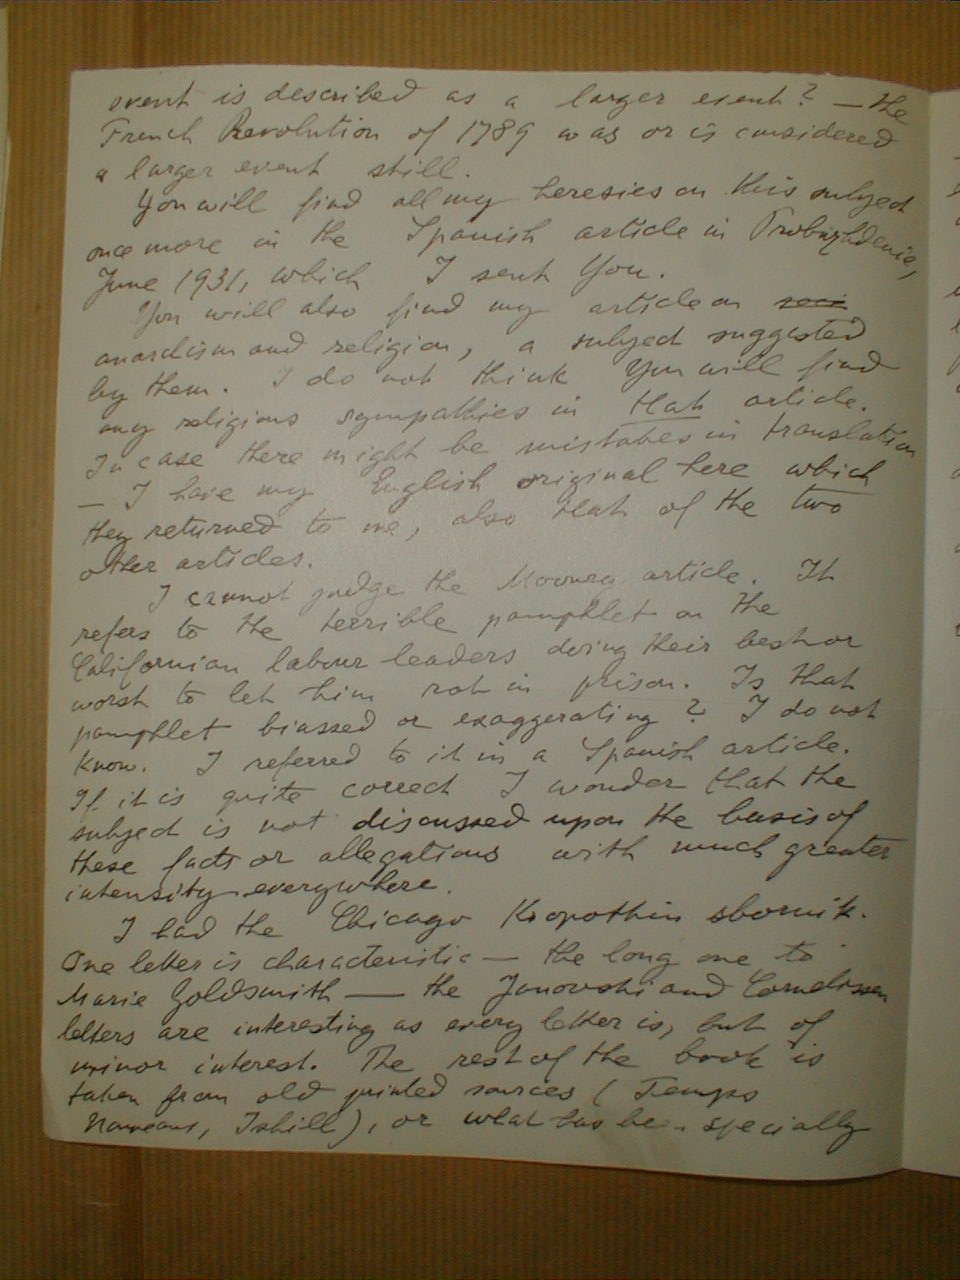 event is described as a larger event? — the
French Revolution of 1789 was or is considered
a larger event still.
You will find all my heresies on this subject
once more in the Spanish article in Probuzhdenie,
June 1931, which I sent You.
You will also find my article on soci
anarchism and religion, a subject suggested
by them. I do not think You will find
my religious sympathies in that article.
In case there might be mistakes in translation
— I have my English original here which
they returned to me, also that of the two
other articles.
I cannot judge the Mooney article. It
refers to the terrible pamphlet on the
Californian labour leaders doing their best or
worst to let him rot in prison. Is that
pamphlet biassed or exaggerating? I do not
know. I referred to it in a Spanish article.
If it is quite correct I wonder that the
subject is not discussed upon the basis of
these facts or allegations with much greater
intensity everywhere.
I had the Chicago Kropotkin sbornik.
One letter is characteristic — the long one to
Marie Goldsmith — the Janovski and Cornelissen
letters are interesting as every letter is, but of
minor interest. The rest of the book is
taken from old printed sources (Temps
Nouveaux, Ishill), or what has be specially